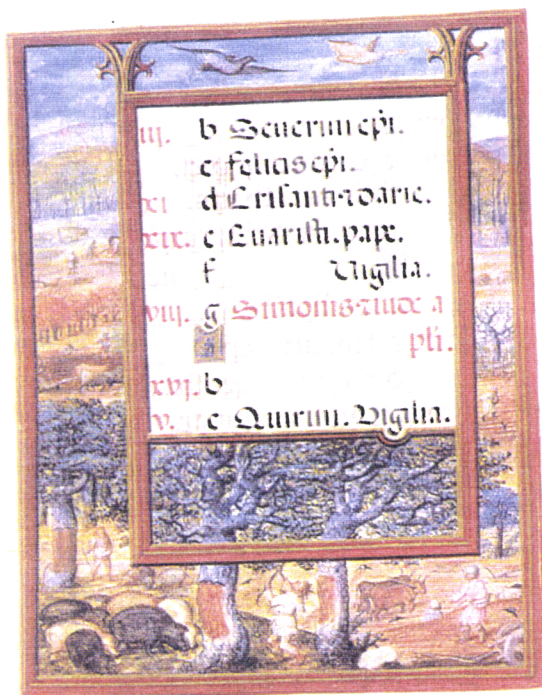 iij. b Seuerini ep̄i.
c felicis ep̄i.
xi d Crisanti ⁊ darie.
xix. e Euaristi. pape.
f Vigilia.
viij. g Simonis ⁊ iude a
a pl̄i.
xvj. b
v. c Quirini. Vigilia.